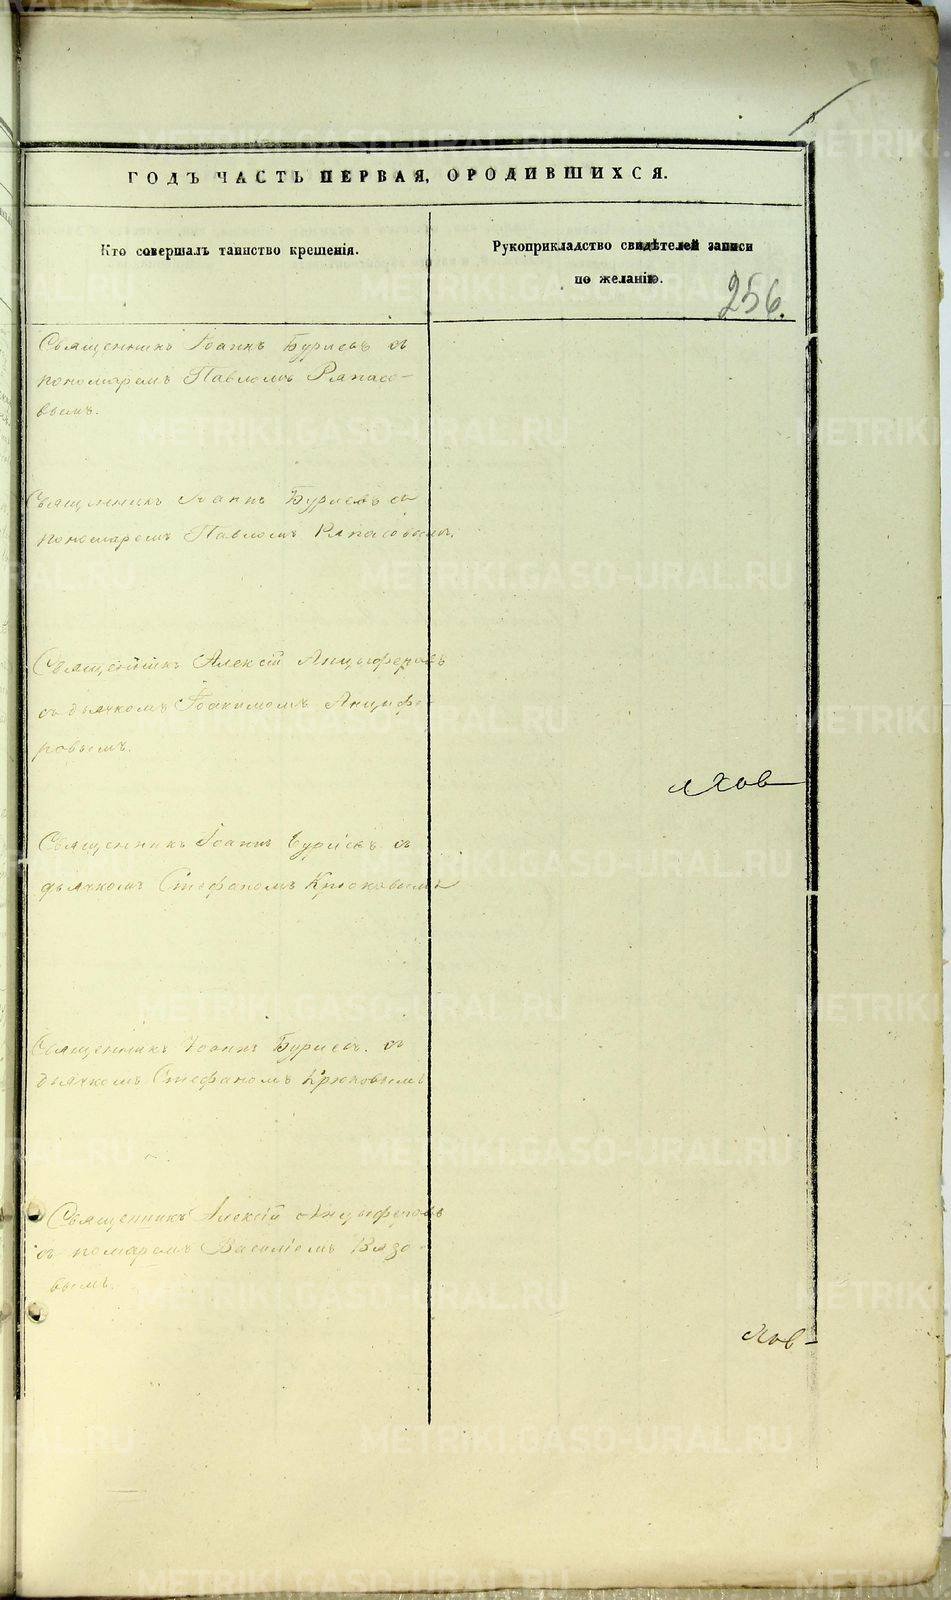 ГОДЪ ЧАСТЬ ПЕРВАЯ, О РОДИВШИХСЯ.
Кто совершалъ таинство крещенія.
Рукоприкладство свидѣтелей записи
по желанію.
256.
Священникъ Іоаннъ Бурлевъ съ
пономаремъ Павломъ Ряпасо-
вымъ.
Священникъ Іоаннъ Бурлевъ съ
пономаремъ Павломъ Ряпасовымъ.
Священникъ Алексій Анцыферовъ
съ дьячкомъ Іоакимомъ Анцифе-
ровымъ.
Священникъ Іоаннъ Бурлевъ съ
дьячкомъ Стефаномъ Крюковымъ
Священникъ Іоаннъ Бурлевъ. съ
дьячкомъ Стефаномъ Крюковымъ
Священникъ Алексій Анцыферовъ
съ помаремъ Василіемъ Вязо-
вымъ.
METRIKI.GASO-URAL.RU